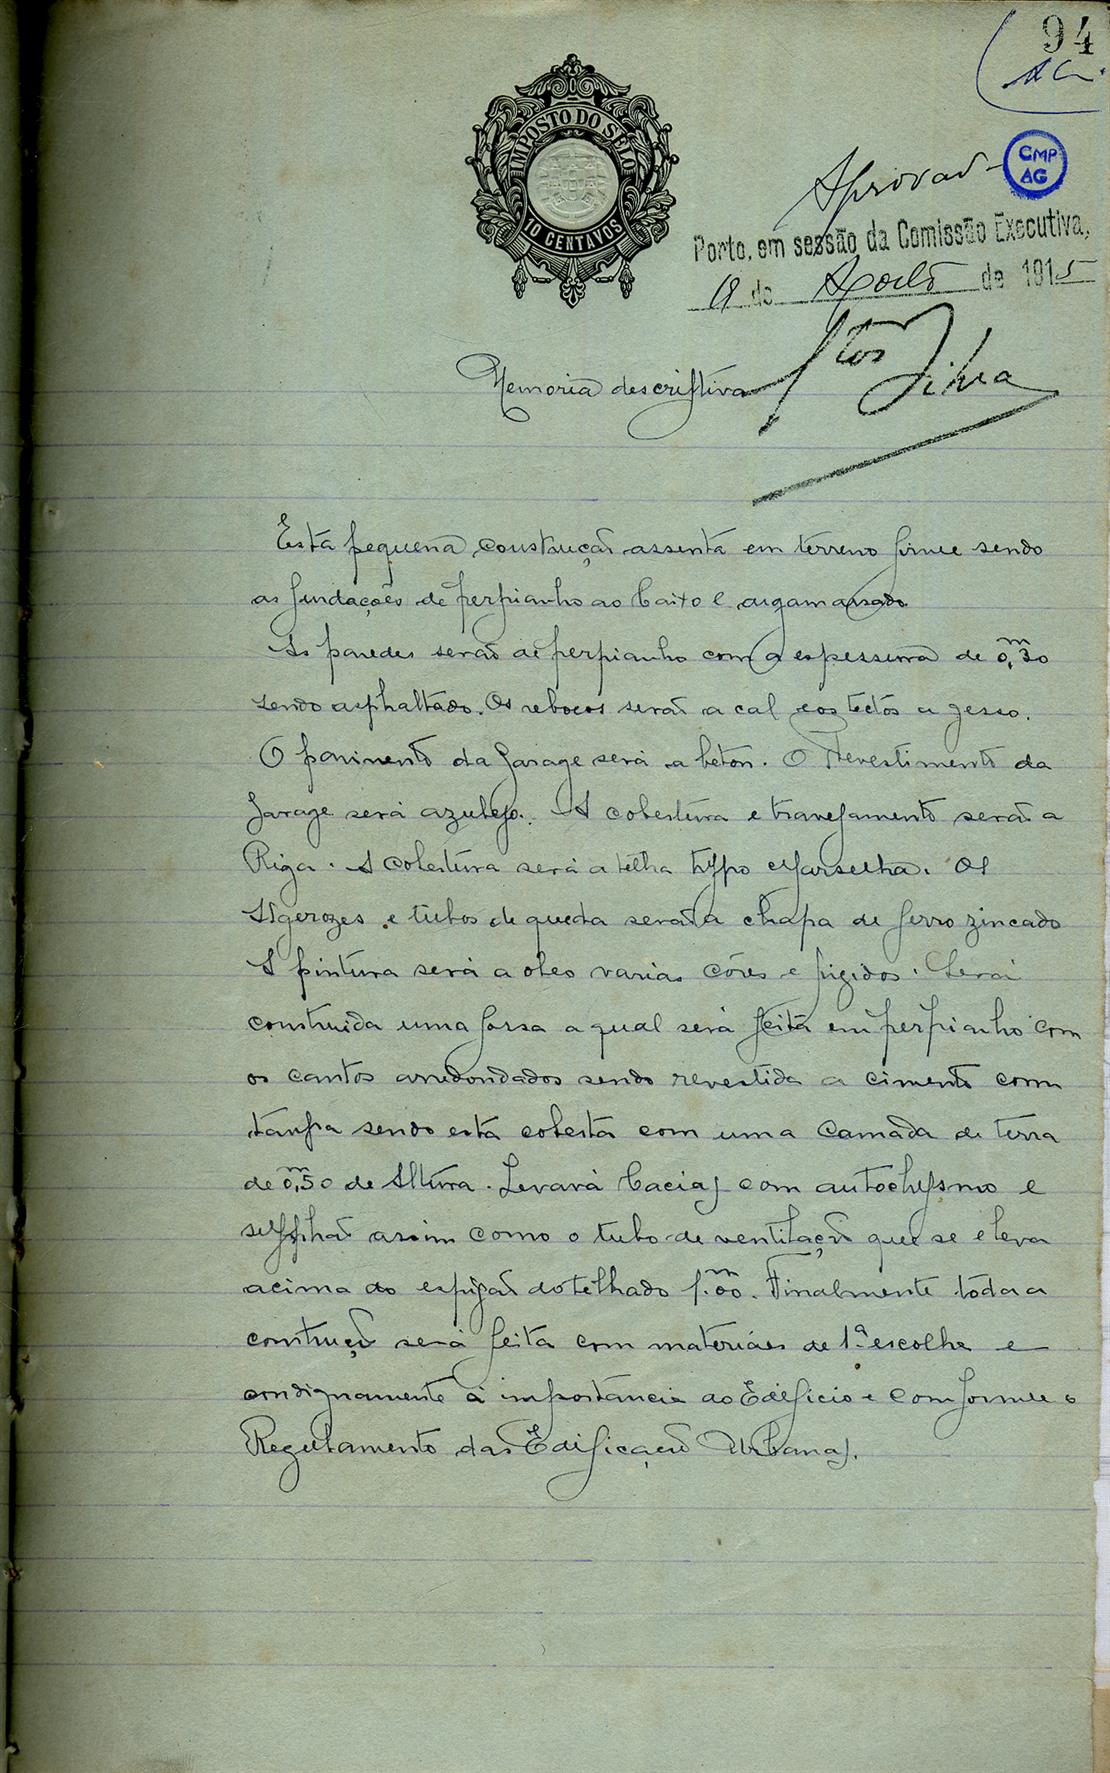 94
CMP
AG
IMPOSTO DO SELO
10 CENTAVOS
Aprovado
Porto, em sessão da Comissão Executiva,
de Agosto de 1915
Stos Silva
Memoria descriptiva
Esta pequena construcção assenta em terreno firme sendo
as fundações de perpianho ao baixo e argamassado
As paredes serão de perpianho com a espessura de 0,m30
sendo asphaltado. Os rebocos serão a cal e os tectos a gesso.
O pavimento da Garage será a beton. O Revestimento da
Garage será azulejo. A cobertura e travejamento serão a
Riga. A cobertura será a telha typo Marselha. Os
Algerozes e tubos de queda serão a chapa de ferro zincado
A pintura será a oleo varias côres e fingidos. Será
construida uma fossa a qual será feita em perpianho com
os cantos arredondados sendo revestida a cimento com
tampa sendo esta coberta com uma camada de terra
de 0,m50 de Altura. Levará bacias com autoclysmo e
syphão assim como o tubo de ventilação que se eleva
acima do espigão do telhado 1.m00. Finalmente toda a
construção será feita com materiáes de 1ª escolha e
condignamente á importancia do Edificio e conforme o
Regulamento das Edificações Urbanas.